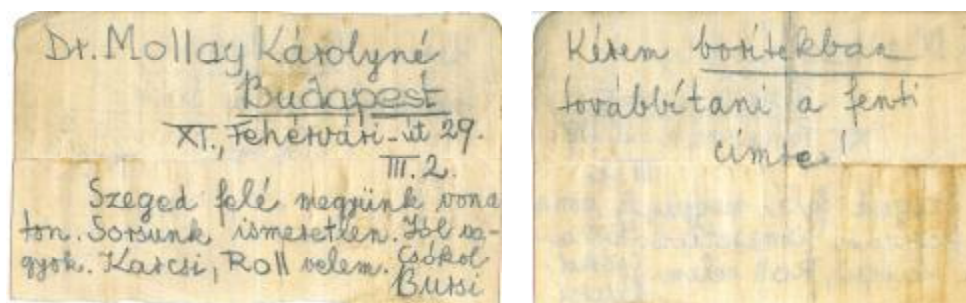 Dr. Mollay Károlyné
Budapest
XI., Fehérvári-út 29.
III. 2.
Szeged felé megyünk vona
ton. Sorsunk ismeretlen. Jól va-
gyok. Karcsi, Roll velem. Csókol
Bursi
Kérem borítékban
továbbítani a fenti
címre!